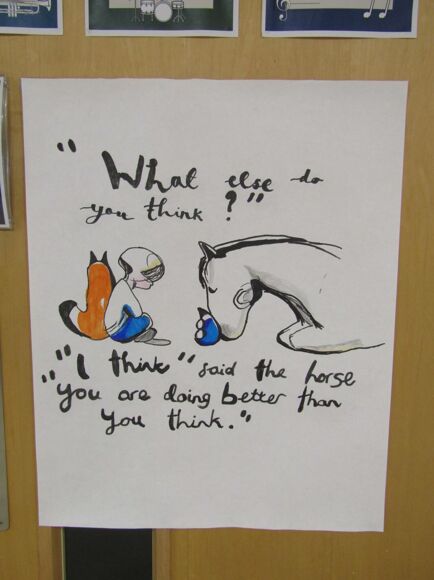 "What else do
you think?"
"I think" said the horse
"you are doing better than
you think."